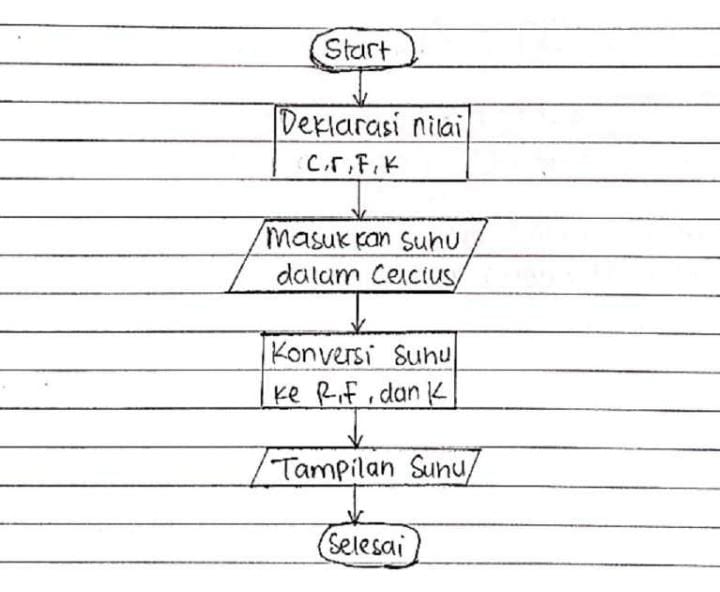 Start
Deklarasi nilai
C,r,F,K
Masukkan suhu
dalam Celcius
Konversi Suhu
ke R,F, dan K
Tampilan Suhu
Selesai